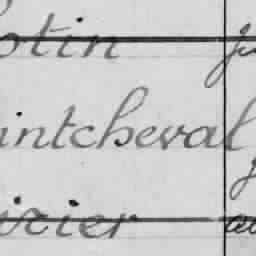 otin
intcheval
irier